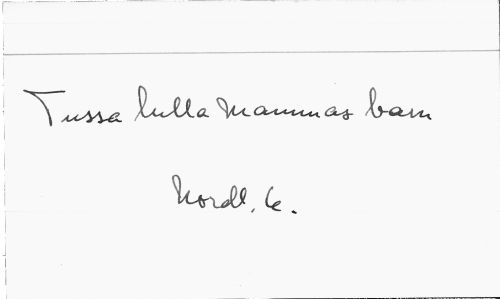 Tussa lulla mammas barn
Nordl. 6.